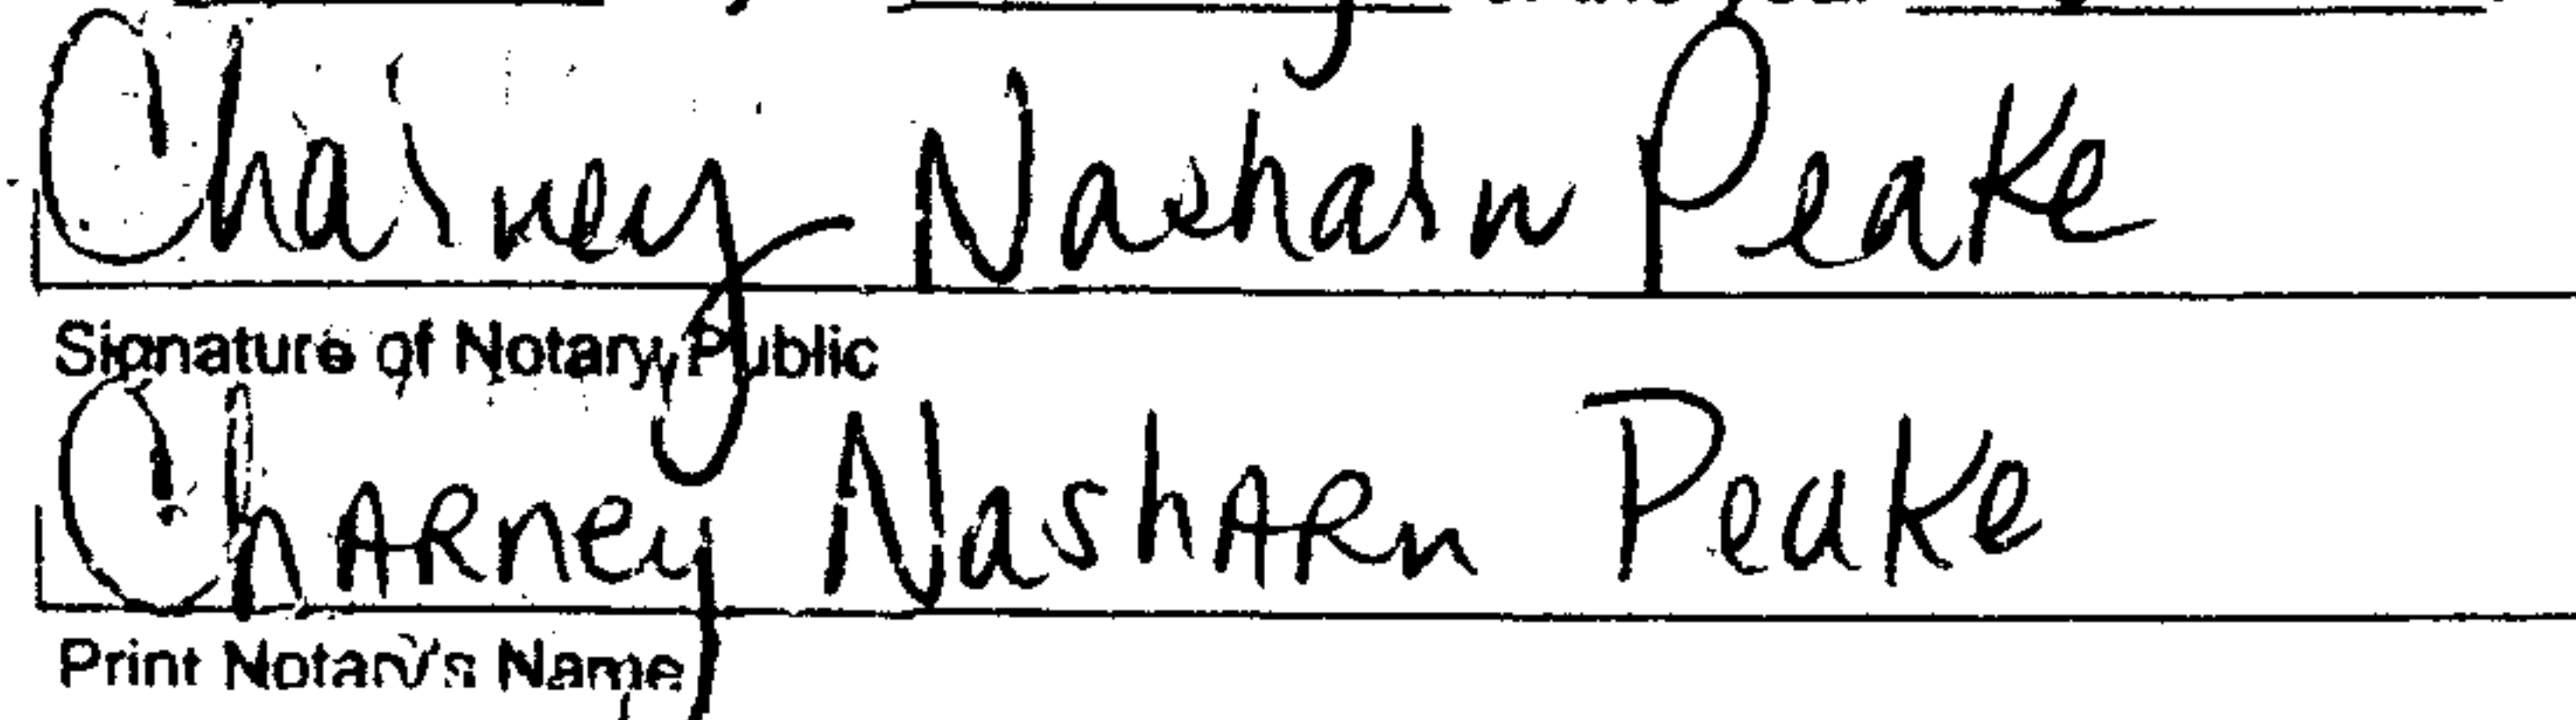 Charney Nasharn Peake
Signature of Notary Public
ChARney NashARn Peake
Print Notary's Name